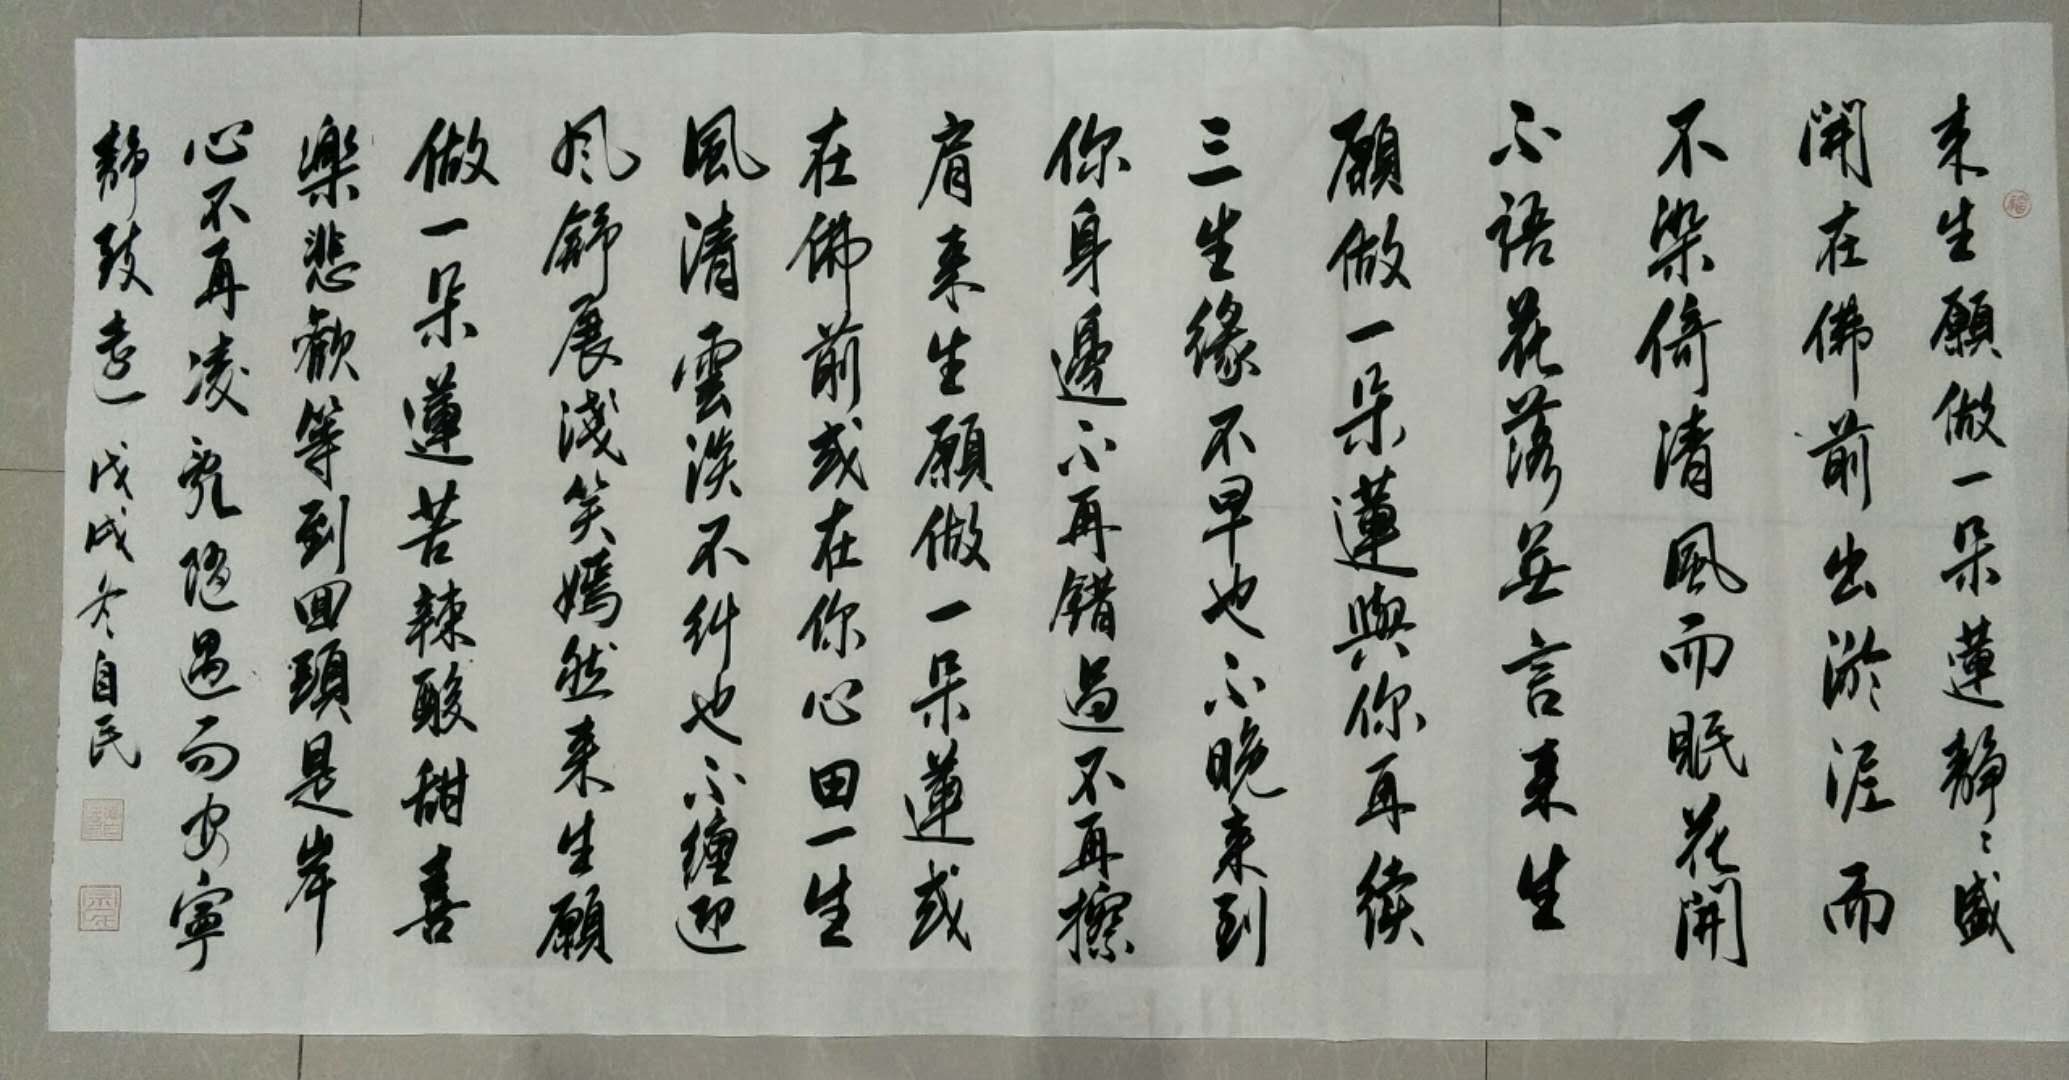 来生願做一朵蓮静〻盛
開在佛前出淤泥而
不染倚清風而眠花開
不語花落無言来生
願做一朵蓮與你再续
三生缘不早也不晚来到
你身邊不再错過不再擦
肩来生願做一朵蓮或
在佛前或在你心田一生
風清雲淡不纠也不缠迎
风舒展淺笑嫣然来生願
做一朵蓮苦辣酸甜喜
樂悲歡等到回頭是岸
心不再凌亂随遇而安寧
静致遠戊戌冬自民